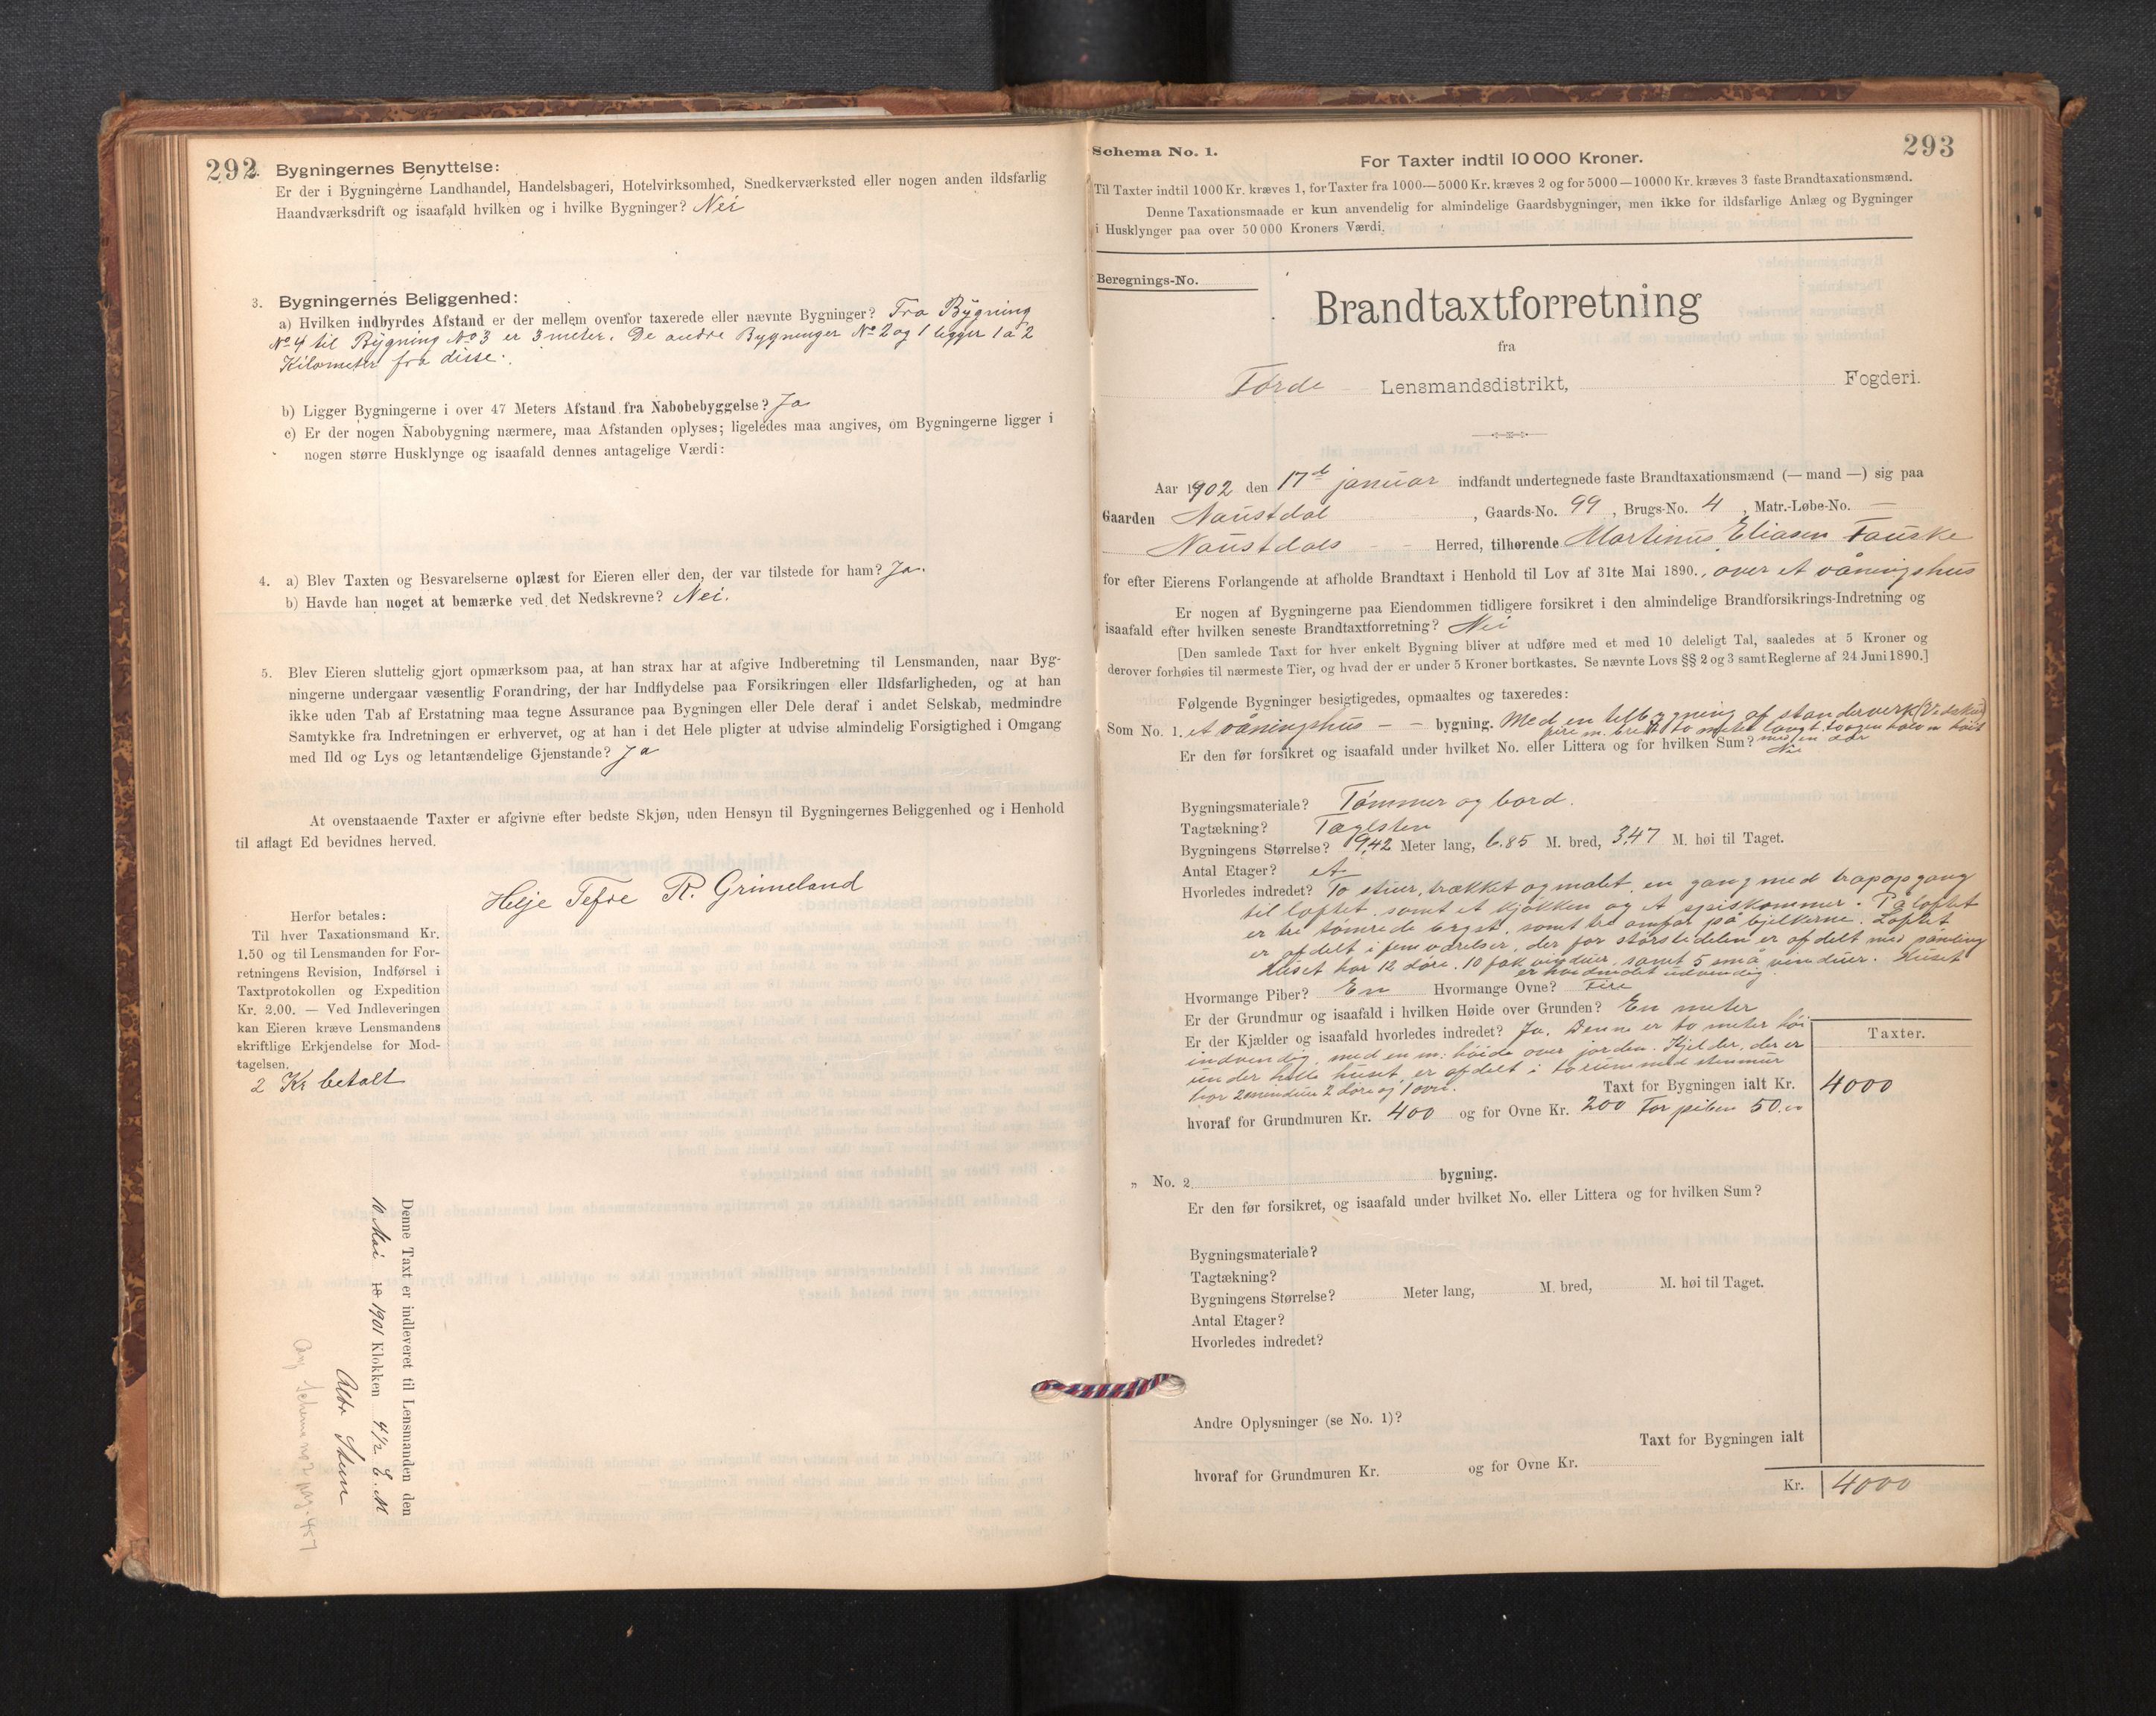 292
2. Bygningernes Benyttelse:
Er der i Bygningerne Landhandel, Handelsbageri, Hotelvirksomhed, Snedkerværksted eller nogen anden ildsfarlig
Haandværksdrift og isaafald hvilken og i hvilke Bygninger? Nei
3. Bygningernes Beliggenhed:
a) Hvilken indbyrdes Afstand er der mellem ovenfor taxerede eller nævnte Bygninger? Fra Bygning
No 4 til Bygning No 3 er 3 meter. De andre Bygninger No 2 og 1 ligger 1 a 2
Kilometer fra disse.
b) Ligger Bygningerne i over 47 Meters Afstand fra Nabobebyggelse? Ja
c) Er der nogen Nabobygning nærmere, maa Afstanden oplyses; ligeledes maa angives, om Bygningerne ligger i
nogen større Husklynge og isaafald dennes antagelige Værdi:
4. a) Blev Taxten og Besvarelserne oplæst for Eieren eller den, der var tilstede for ham? Ja.
b) Havde han noget at bemærke ved det Nedskrevne? Nei.
5. Blev Eieren sluttelig gjort opmærksom paa, at han strax har at afgive Indberetning til Lensmanden, naar Byg-
ningerne undergaar væsentlig Forandring, der har Indflydelse paa Forsikringen eller Ildsfarligheden, og at han
ikke uden Tab af Erstatning maa tegne Assurance paa Bygningen eller Dele deraf i andet Selskab, medmindre
Samtykke fra Indretningen er erhvervet, og at han i det Hele pligter at udvise almindelig Forsigtighed i Omgang
med Ild og Lys og letantændelige Gjenstande? Ja
At ovenstaaende Taxter er afgivne efter bedste Skjøn, uden Hensyn til Bygningernes Beliggenhed og i Henhold
til aflagt Ed bevidnes herved.
Helje Tefre R. Grimeland
Herfor betales:
Til hver Taxationsmand Kr.
1.50 og til Lensmanden for For-
retningens Revision, Indførsel i
Taxtprotokollen og Expedition
Kr. 2.00. — Ved Indleveringen
kan Eieren kræve Lensmandens
skriftlige Erkjendelse for Mod-
tagelsen.
2 Kr betalt
Denne Taxt er indleveret til Lensmanden den
10 Mai 18 1901 Klokken 4 1/2 E. M
Schema no 2 pag. 457
293
Schema No. 1.
For Taxter indtil 10 000 Kroner.
Til Taxter indtil 1000 Kr. kræves 1, for Taxter fra 1000—5000 Kr. kræves 2 og for 5000—10000 Kr. kræves 3 faste Brandtaxationsmænd.
Denne Taxationsmaade er kun anvendelig for almindelige Gaardsbygninger, men ikke for ildsfarlige Anlæg og Bygninger
i Husklynger paa over 50 000 Kroners Værdi.
Beregnings-No.
Brandtaxtforretning
fra
Førde Lensmandsdistrikt, Fogderi.
Aar 1902 den 17de januar indfandt undertegnede faste Brandtaxationsmænd (— mand —) sig paa
Gaarden Naustdal, Gaards-No. 99, Brugs-No. 4, Matr.-Løbe-No. —
Naustdals Herred, tilhørende Martinus Eliasen Fauske
for efter Eierens Forlangende at afholde Brandtaxt i Henhold til Lov af 31te Mai 1890., over et våningshus
Er nogen af Bygningerne paa Eiendommen tidligere forsikret i den almindelige Brandforsikrings-Indretning og
isaafald efter hvilken seneste Brandtaxtforretning? Nei
[Den samlede Taxt for hver enkelt Bygning bliver at udføre med et med 10 deleligt Tal, saaledes at 5 Kroner og
derover forhøies til nærmeste Tier, og hvad der er under 5 Kroner bortkastes. Se nævnte Lovs §§ 2 og 3 samt Reglerne af 24 Juni 1890.]
Følgende Bygninger besigtigedes, opmaaltes og taxeredes:
Som No. 1. et våningshus — — bygning. Med en tilbygning af standerverk (Vedskur)
fire m. bredt to meter langt to og en halv m høit
Er den før forsikret og isaafald under hvilket No. eller Littera og for hvilken Sum? med en dør
Nei
Bygningsmateriale? Tømmer og bord.
Tagtækning? Taglsten
Bygningens Størrelse? 9,42 Meter lang, 6.85 M. bred, 3,47 M. høi til Taget.
Antal Etager? et
Hvorledes indredet? To stuer, trækket og malet, en gang med trapopgang
til loftet, samt et kjøkken og et spiskammer. På loftet
er tre tømrede bægst, samt tre omfar på bjelkerne. Loftet
er afdelt i fem værelser, der for størstedelen er afdelt med panling
Huset har 12 døre, 10 fak vinduer, samt 5 små vinduer. Huset
er hvidmalet udvendig.
Hvormange Piber? En Hvormange Ovne? Fire
Er der Grundmur og isaafald i hvilken Høide over Grunden? En meter
Er der Kjælder og isaafald hvorledes indredet? Ja. Denne er to meter høi
indvendig, med en m: høide over jorden. Kjelder, der er
under hele huset er afdelt i to rum med stenmur
har 2 vinduer 2 døre og 1 ovn.
Taxter.
Taxt for Bygningen ialt Kr. 4000
hvoraf for Grundmuren Kr. 400 og for Ovne Kr. 200 For piben 50.00
„ No. 2 bygning.
Er den før forsikret, og isaafald under hvilket No. eller Littera og for hvilken Sum?
Bygningsmateriale?
Tagtækning?
Bygningens Størrelse? Meter lang, M. bred, M. høi til Taget.
Antal Etager?
Hvorledes indredet?
Andre Oplysninger (se No. 1)?
Taxt for Bygningen ialt
hvoraf for Grundmuren Kr. og for Ovne Kr.
Kr. 4000